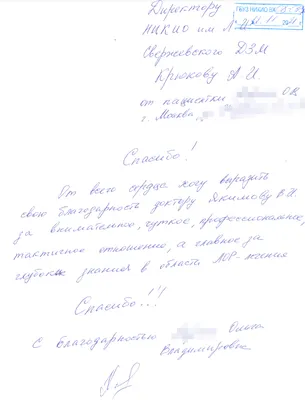 Директору
НИКИО им Л.И.
Свержевского ДЗМ
Крюкову А И.
от пациентки О.В.
г. Москва,
Спасибо!
От всего сердца хочу выразить
свою благодарность доктору Якимову В.И.
за внимательное, чуткое, профессиональное,
тактичное отношение, а главное за
глубокие знания в область ЛОР-лечения
Спасибо!!!
С благодарностью Ольга
Владимировна